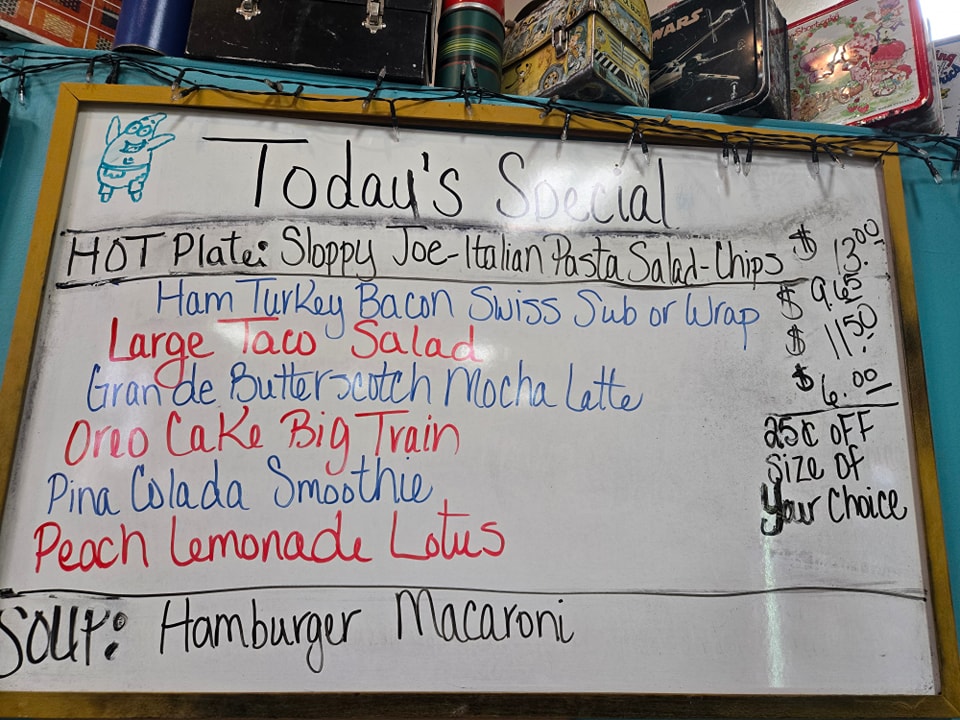 STAR WARS
Today's Special
HOT Plate: Sloppy Joe-Italian Pasta Salad-Chips $ 13.00
Ham Turkey Bacon Swiss Sub or Wrap $ 9.65
Large Taco Salad $ 11.50
Grande Butterscotch Mocha Latte $ 6.00
Oreo Cake Big Train
Pina Colada Smoothie
Peach Lemonade Lotus
25¢ OFF
Size Of
Your Choice
SOUP: Hamburger Macaroni